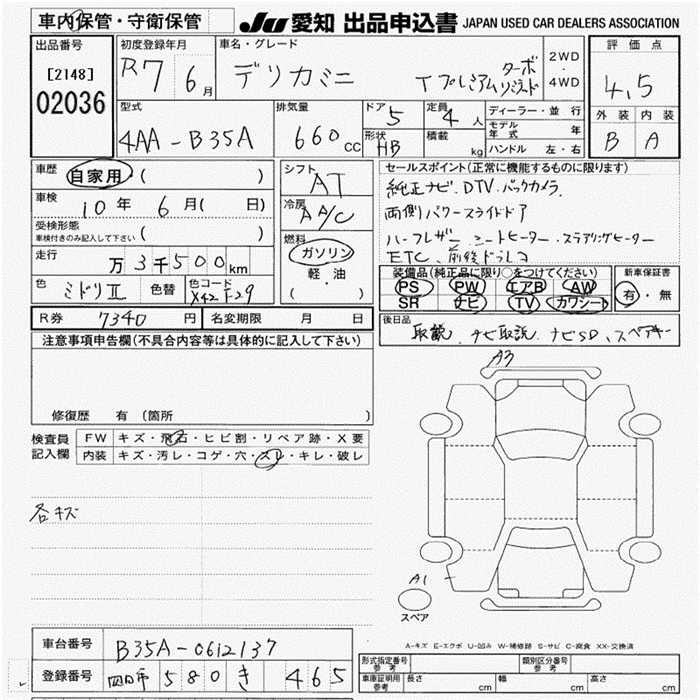 車内保管・守衛保管
JU 愛知 出品申込書 JAPAN USED CAR DEALERS ASSOCIATION
出品番号
[2148]
02036
初度登録年月
R7 6月
車名・グレード
デリカミニ
Tプレミアム ターボ
2WD
・
4WD
評価点
4.5
外装 内装
B A
型式
4AA-B35A
排気量
660 cc
ドア 5
定員 4人
形状 HB
積載 kg
ディーラー・並行
モデル年式 年
ハンドル 左・右
車歴
自家用 ( )
車検
10年 6月 ( 日)
受検形態
車検付きのみ記入して下さい ( )
走行
万3千500km
色
ミドリII 色替
色コード
X42 F29
シフト
AT
冷房
AAC
燃料
ガソリン
軽・油
( )
セールスポイント(正常に機能するものに限ります)
純正ナビ.DTV.バックカメラ.
両側パワースライドドア
ハーフレザー シートヒーター.ステアリングヒーター
ETC.前後ドラレコ
装備品(純正品に限り○をつけてください)
PS PW エアB AW
SR ナビ TV カワシート
新車保証書
有・無
R券 7340円 名変期限 月 日
後日品
取説.ナビ取説.ナビSD.スペアキー
注意事項申告欄(不具合内容等は具体的に記入して下さい)
修復歴 有 (箇所 )
検査員
記入欄
FW キズ・飛石・ヒビ割・リペア跡・X要
内装 キズ・汚レ・コゲ・穴・スレ・キレ・破レ
各キズ
A3
A1
スペア
A-キズ E-エクボ U-凹み W-補修跡 S-サビ C-腐食 XX-交換済
車台番号 B35A-0612137
登録番号 四日市 580 き 465
形式指定番号 参考
類別区分番号 参考
車庫証明用 参考 長さ cm 幅 cm 高さ cm